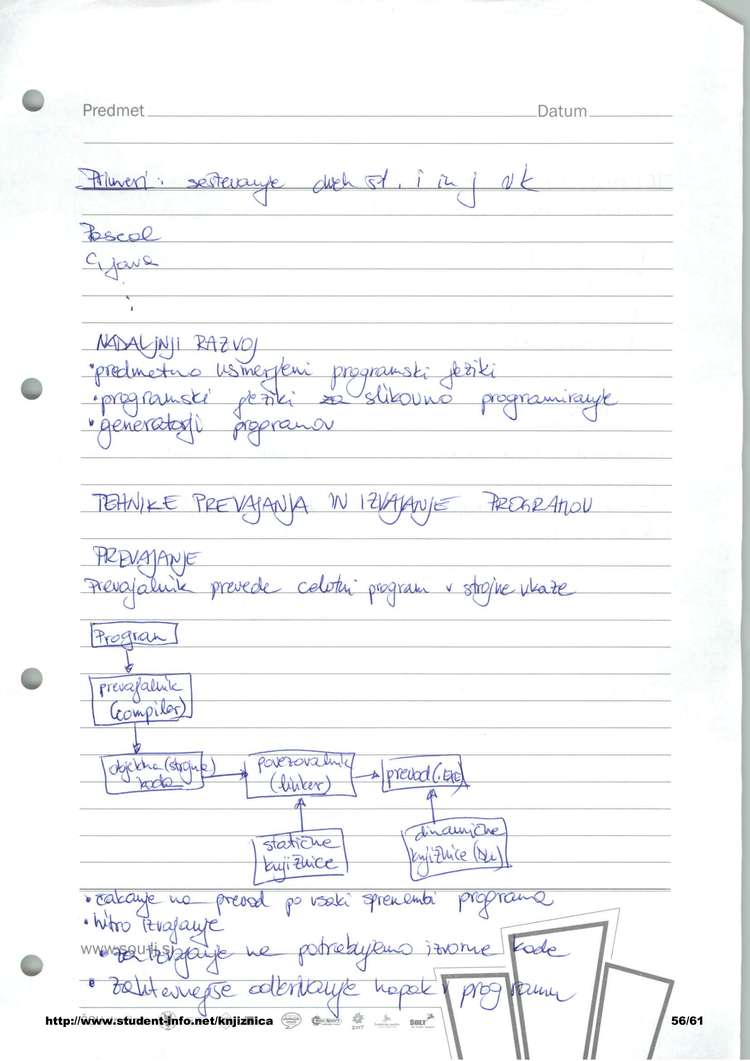 Predmet Datum
Primeri: seštevanje dveh št. i in j v k
Pascal
C, java
NADALJNJI RAZVOJ
• predmetno usmerjeni programski jeziki
• programski jeziki za slikovno programiranje
• generatorji programov
TEHNIKE PREVAJANJA IN IZVAJANJE PROGRAMOV
PREVAJANJE
Prevajalnik prevede celotni program v strojne ukaze
Program
prevajalnik
(compiler)
objektna (strojna)
koda
povezovalnik
(linker)
prevod (.EXE)
statične
knjižnice
dinamične
knjižnice (DLL)
• čakanje na prevod po vsaki spremembi programa
• hitro izvajanje
www.sou-lj.si
• za izvajanje ne potrebujemo izvorne kode
• zahtevnejše odkrivanje napak v programu
http://www.student-info.net/knjiznica 56/61